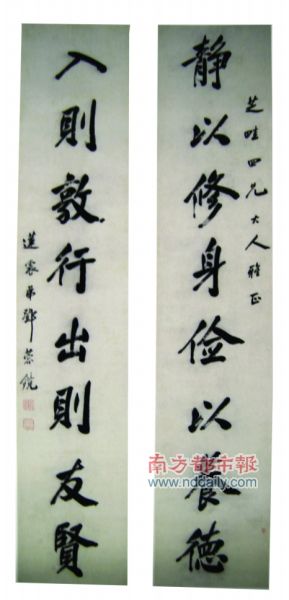 芝畦四兄大人雅正
静以修身俭以養德
入則敦行出則友賢
蓮裳弟鄧蓉鏡
南方都市報
www.nddaily.com